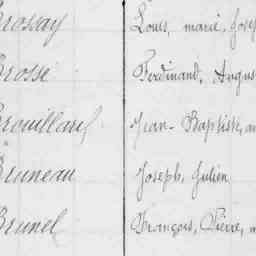 Brossay Louis, marie, Josep
Brosse Ferdinand, August
Brouillard Jean-Baptiste, an
Bruneau Joseph, Julien
Brunel François, Pierre, m